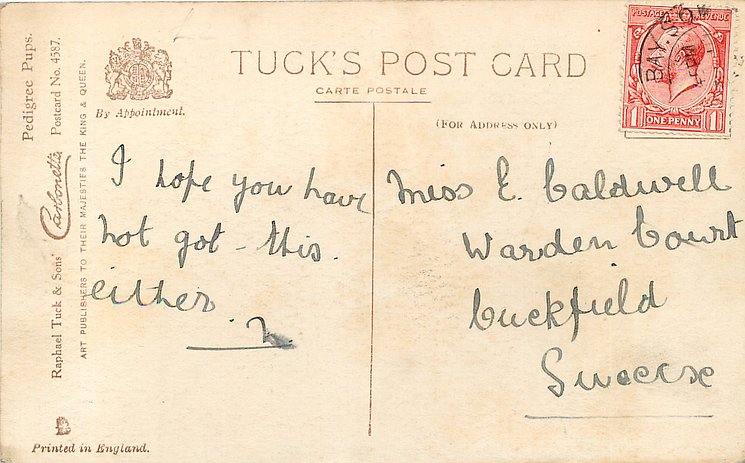 Pedigree Pups.
Raphael Tuck & Sons' Carbonette Postcard No. 4587.
ART PUBLISHERS TO THEIR MAJESTIES THE KING & QUEEN.
By Appointment.
TUCK'S POST CARD
CARTE POSTALE
(FOR ADDRESS ONLY)
POSTAGE REVENUE
1 ONE PENNY 1
BAY.
I hope you have
not got this.
either
Miss E. Caldwell
Warden Court
Cuckfield
Sussex
Printed in England.